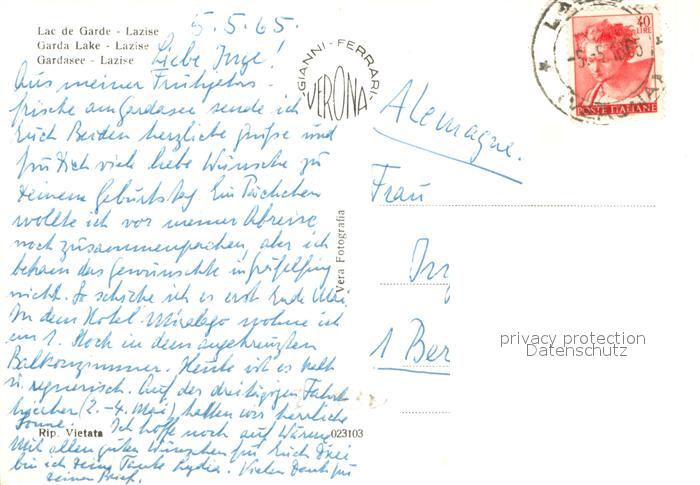 Lac de Garde - Lazise
Garda Lake - Lazise
Gardasee - Lazise
5.5.65.
Liebe Inge!
Aus meiner Frühjahrs-
frische am Gardasee sende ich
Euch Beiden herzliche Grüße und
für Dich viele liebe Wünsche zu
Deinem Geburtstag. Ein Päckchen
wollte ich vor meiner Abreise
noch zusammenpacken, aber ich
bekam das Gewünschte in Gräfelfing
nicht. So schicke ich es erst Ende Mai.
In dem Hotel Miralago wohne ich
im 1. Stock in dem angekreuzten
Balkonzimmer. Heute ist es kalt
u. regnerisch. Auf der dreitägigen Fahrt
hierher (2.-4. Mai) hatten wir herrliche
Sonne. Ich hoffe noch auf Wärme
Mit allen guten Wünschen für Euch Drei
bin ich Deine Tante Lydia. Vielen Dank für
Deinen Brief.
Rip. Vietata
023103
GIANNI-FERRARI-
VERONA
Vera Fotografia
40
LIRE
POSTE ITALIANE
Alemagne.
Frau
In
1 Ber
privacy protection
Datenschutz